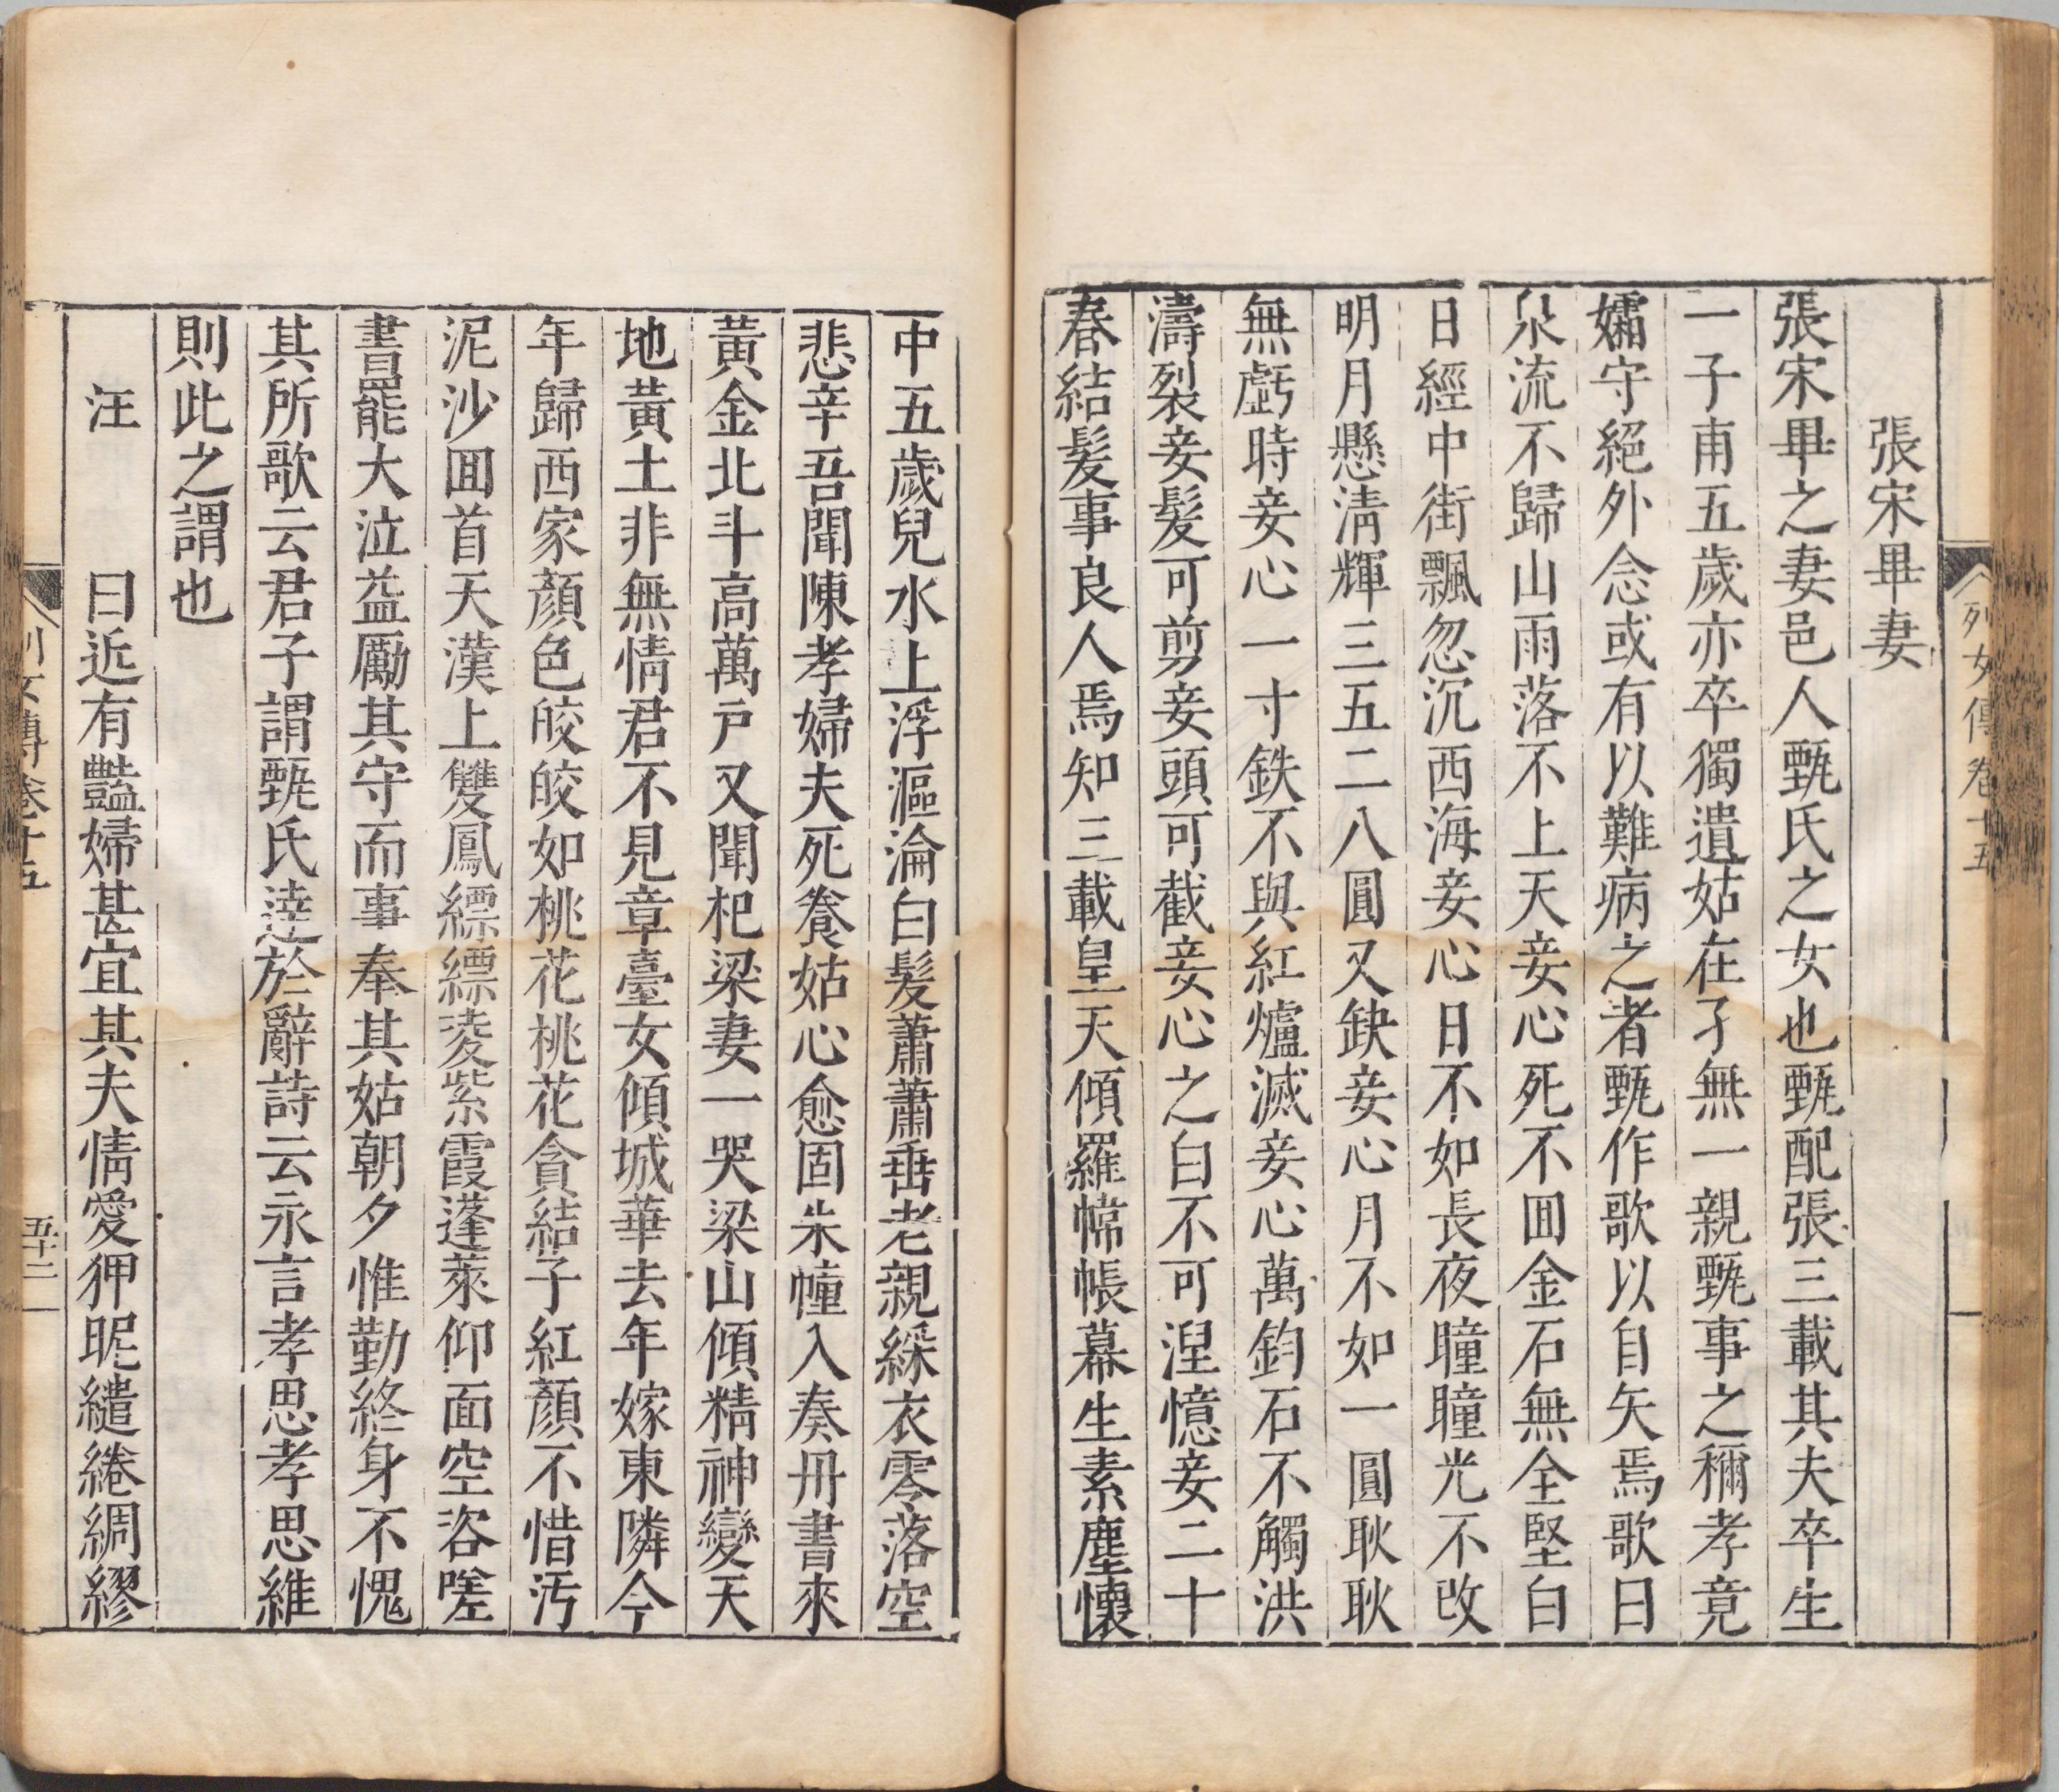 列女傳卷十五
張宋畢妻
張宋畢之妻邑人甄氏之女也甄配張三載其夫卒生
一子甫五歲亦卒獨遺姑在孑無一親甄事之稱孝竟
孀守絕外念或有以難病之者甄作歌以自矢焉歌曰
泉流不歸山雨落不上天妾心死不囬金石無全堅白
日經中街飄忽沉西海妾心日不如長夜曈曈光不改
明月懸清輝三五二八圓又缺妾心月不如一圓耿耿
無虧時妾心一寸鉄不與紅爐滅妾心萬鈞石不觸洪
濤裂妾髮可剪妾頭可截妾心之白不可涅憶妾二十
春結髮事良人焉知三載皇天傾羅幃帳幕生素塵懷
中五歲兒水上浮漚淪白髮蕭蕭垂老親綵衣零落空
悲辛吾聞陳孝婦夫死養姑心愈固朱幢入奏丹書來
黃金北斗高萬戶又聞杞梁妻一哭梁山傾精神變天
地黃土非無情君不見章臺女傾城華去年嫁東隣今
年歸西家顏色皎皎如桃花桃花貪結子紅顏不惜汚
泥沙囬首天漢上雙鳳縹縹凌紫霞蓬萊仰面空咨嗟
書罷大泣益勵其守而事奉其姑朝夕惟勤終身不愧
其所歌云君子謂甄氏達於辭詩云永言孝思孝思維
則此之謂也
汪 曰近有豔婦甚宜其夫情愛狎昵繾綣綢繆
列女傳卷十五
五十二